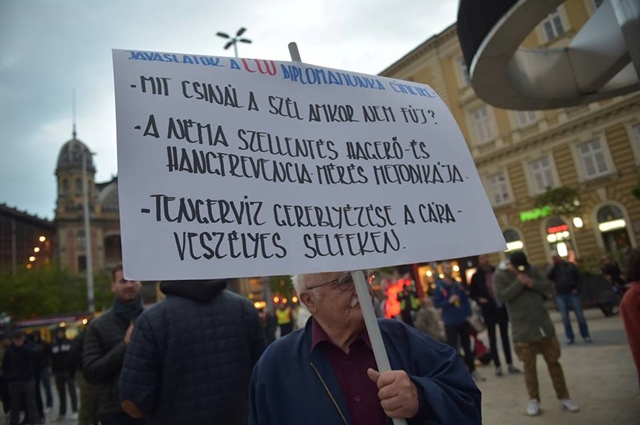 JAVASLATOK A CEU DIPLOMAMUNKA
-MIT CSINÁL A SZÉL AMKOR NEM FÚJ?
-A NÉMA SZELLENTÉS HAGERŐ-ÉS
HANGFREVENCIA-MÉRÉS METODIKÁJA.
-TENGERVÍZ GEREBLYÉZÉSE A CÁPA-
VESZÉLYES SELFEKEN.